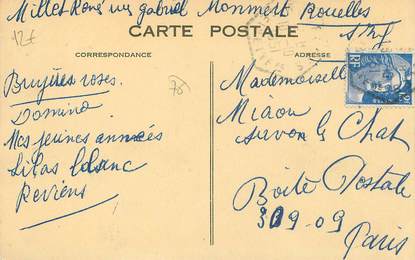 Millet René rue gabriel Monmert Bouelles
S. Inf
12f
CARTE POSTALE
CORRESPONDANCE
ADRESSE
Bruyères roses.
Domino
Mes jeunes années
Lilas blanc
Reviens
Mademoiselle
Miaou
le Chat
Boîte Postale
309-09
Paris
RF